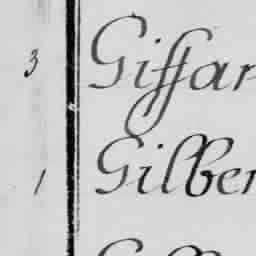 3 Giffar
1 Gilber